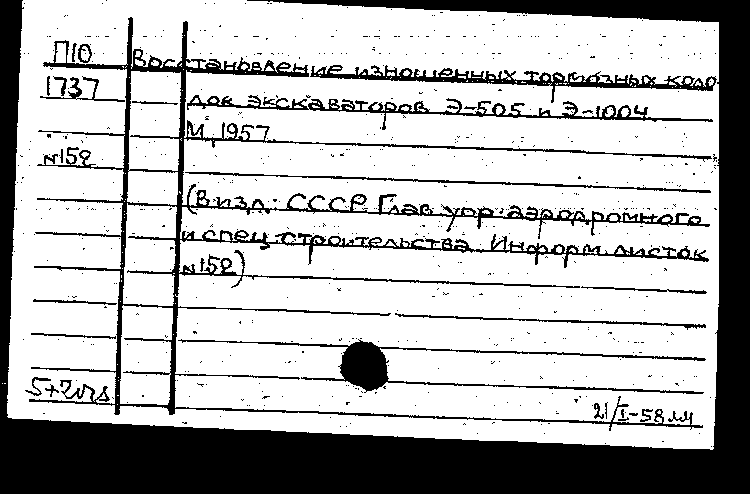 П10 Восстановление изношенных тормозных коло-
1737 док экскаваторов Э-505 и Э-1004.
М, 1957.
№152
(В изд.: СССР. Глав. упр. аэродромного
и спец. строительства. Информ. листок
№152)
21/I-58